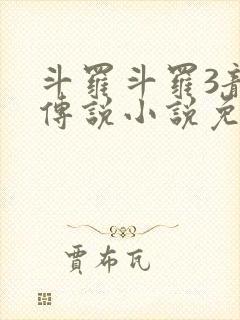 斗羅斗羅3
傳說小說免
賈布瓦